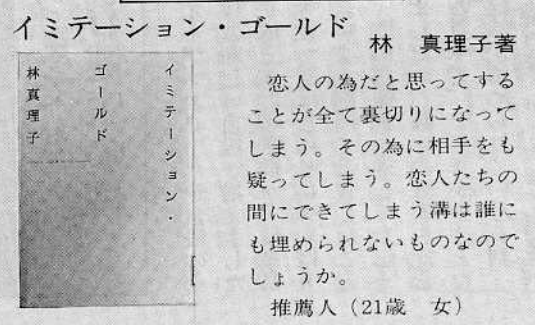 イミテーション・ゴールド
林 真理子著
イミテーション・
ゴールド
林真理子
恋人の為だと思ってする
ことが全て裏切りになって
しまう。その為に相手をも
疑ってしまう。恋人たちの
間にできてしまう溝は誰に
も埋められないものなので
しょうか。
推薦人(21歳 女)